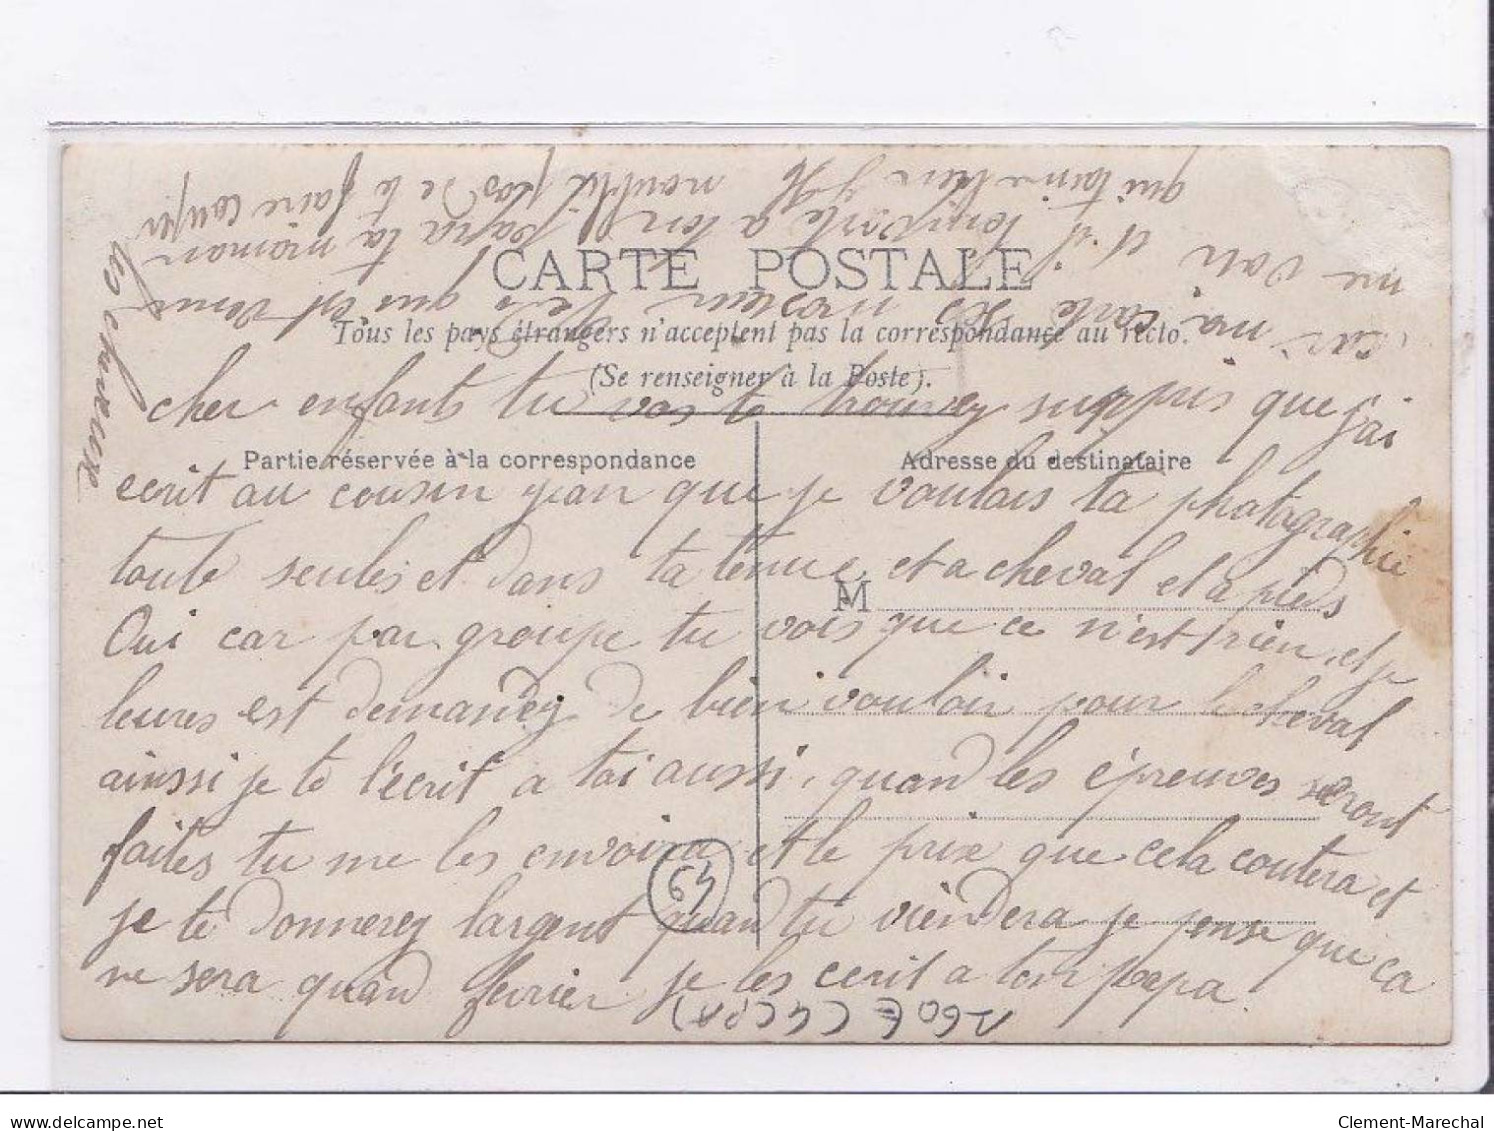 CARTE POSTALE
Tous les pays étrangers n'acceptent pas la correspondance au recto.
(Se renseigner à la Poste).
Partie réservée à la correspondance
Adresse du destinataire
M
cher enfants tu vas te trouvez surpris que j'ai
ecrit au cousin jean que je voulais ta photographie
toute seules et dans ta tenue et a cheval et a pieds
Oui car par groupe tu vois que ce n'est rien et je
leures est demandez de bien vouloir pour le cheval
ainssi je te l'écrit a toi aussi, quand les épreuves seront
faites tu me les envoira et le prix que cela coutera et
je te donnerez largent quand tu viendera je pense que ca
ne sera quand fevrier je les ecrit a ton papa
les cheveux
car ma carte monsieur qui est venu
me voir et il l'emporte a ton papa ta maman
qui taime bien n'oublit pas de te faire couper
64
260 € (4CPA)
Clement-Marechal
delcampe.net